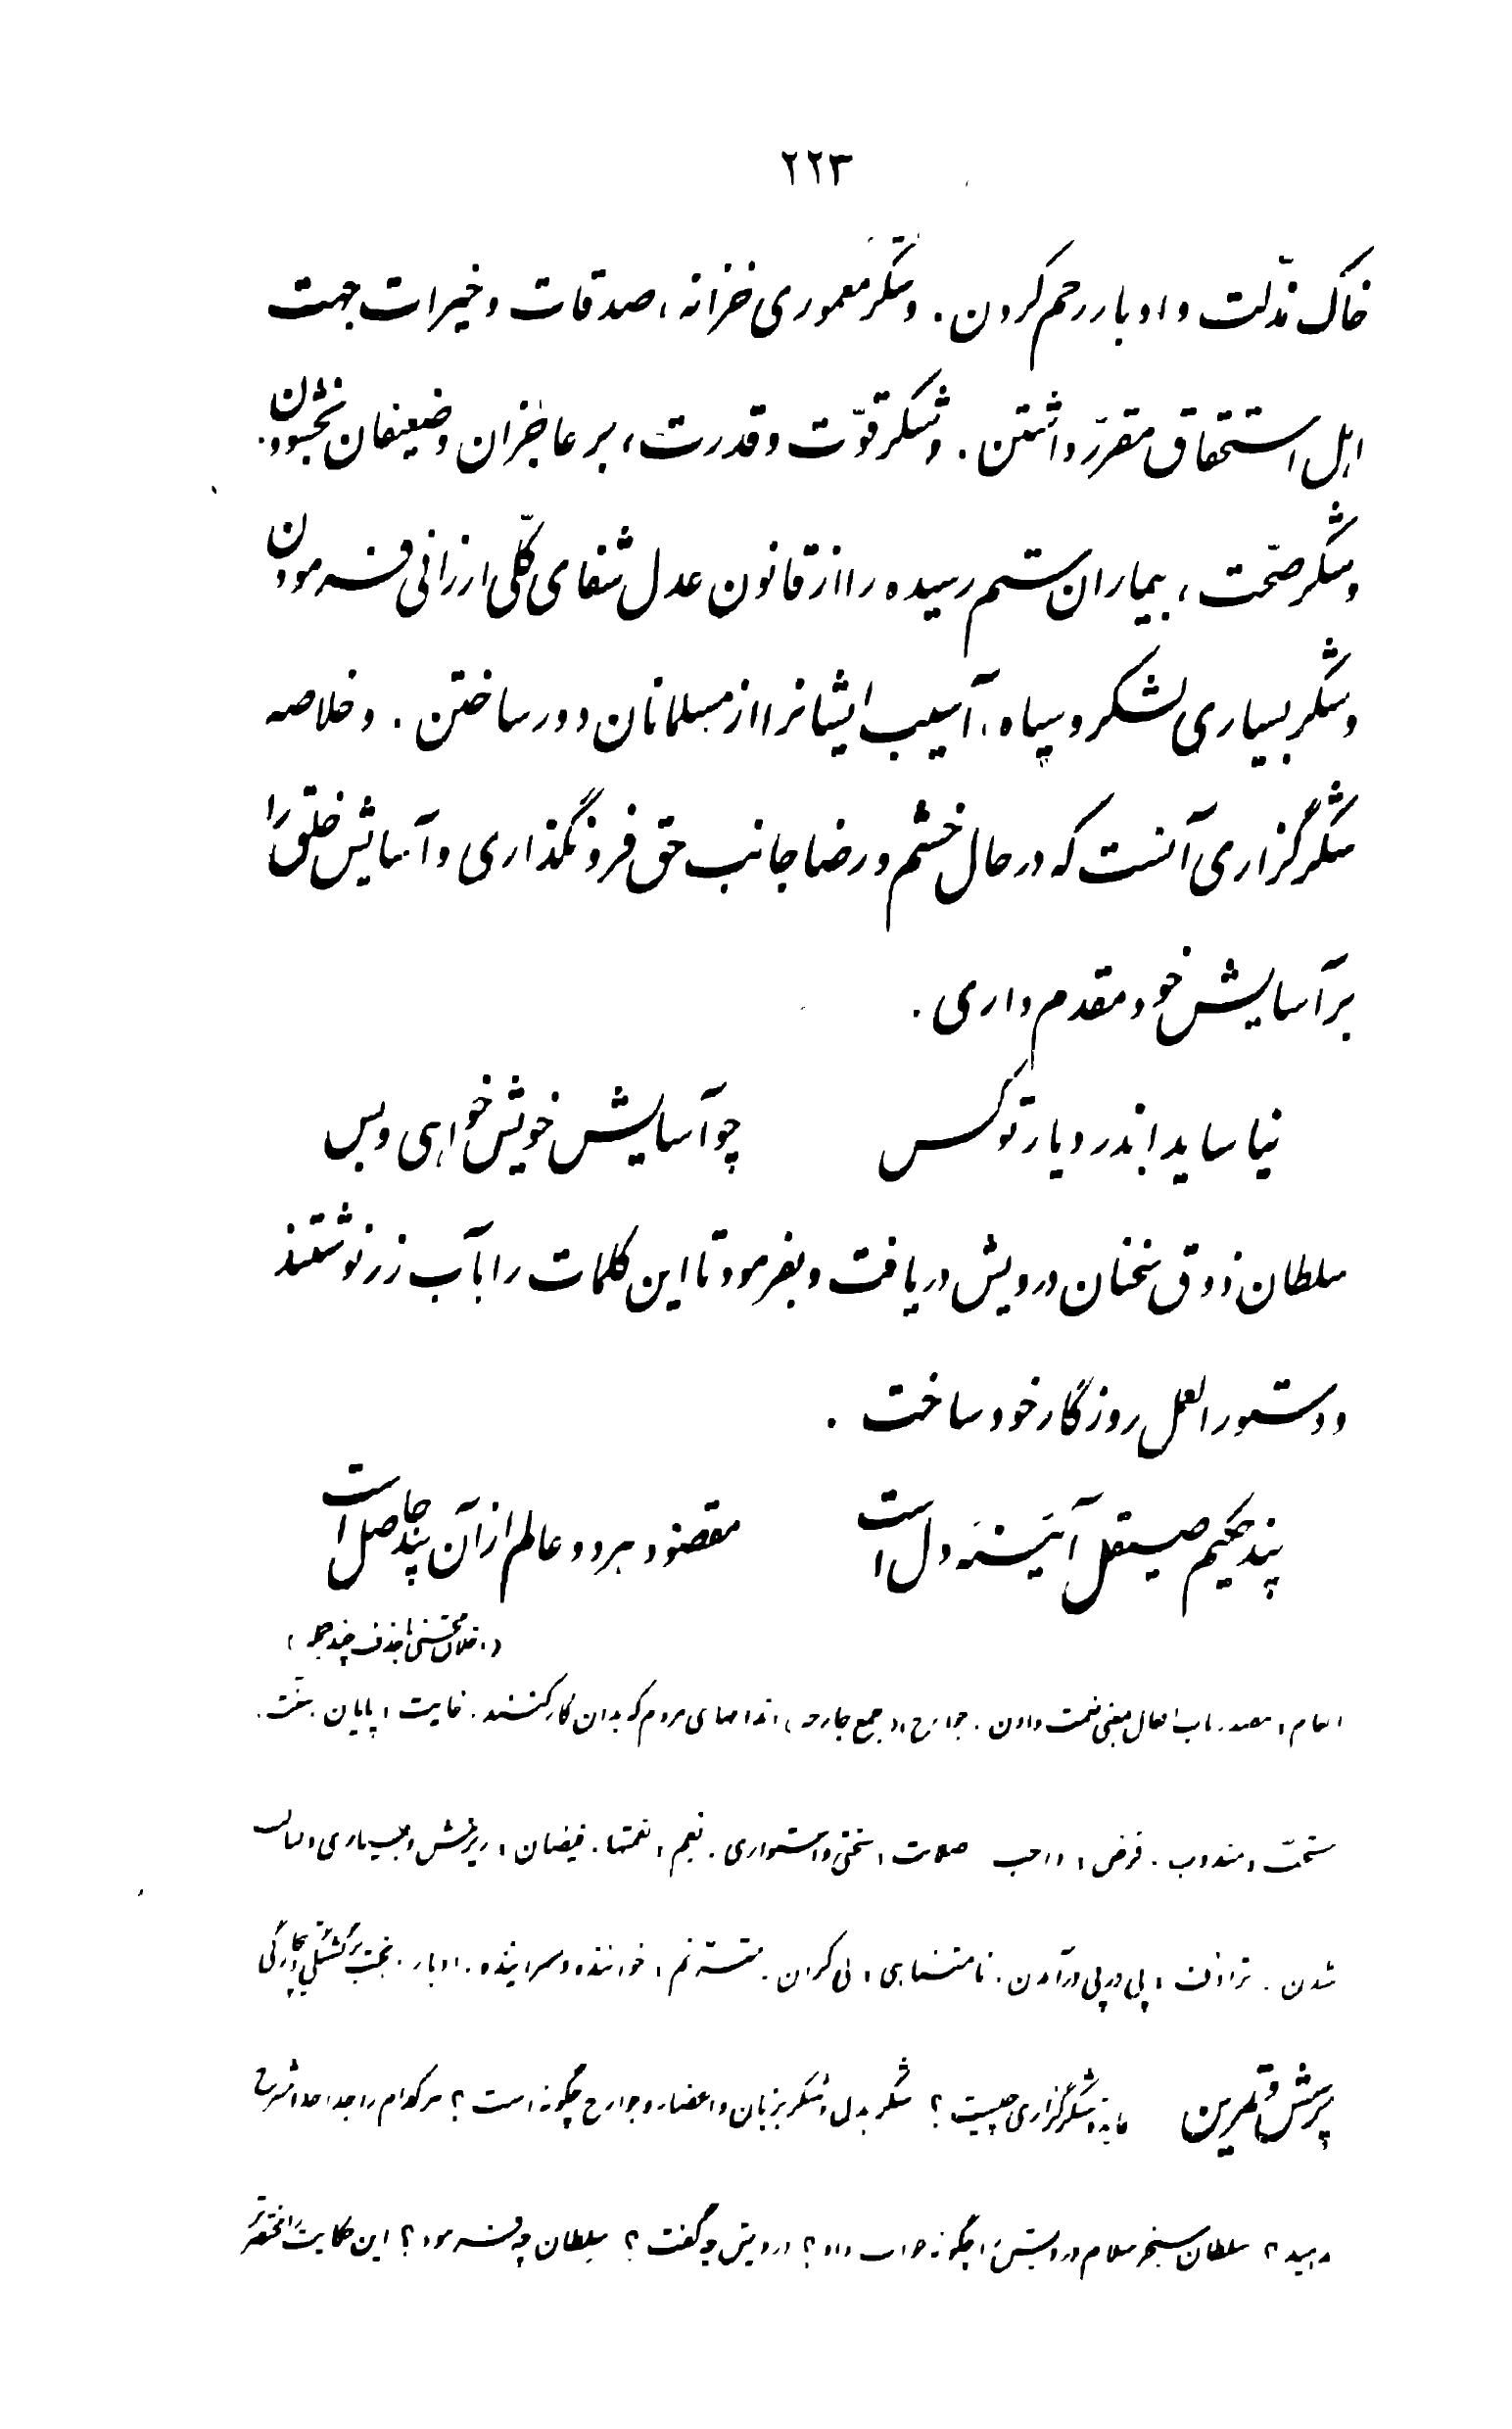 ۲۲۳
خاک مذلّت و ادبار رحم کردن . و شکر معموری خزانه ، صدقات و خیرات جهت
اهل استحقاق مقرّر داشتن . و شکر قوّت و قدرت ، بر عاجزان و ضعیفان بخشودن .
و شکر صحّت ، بیماران ستم رسیده را از قانون عدل شفای کلّی ارزانی فرمودن
و شکر بسیاری لشکر و سپاه ، آسیب ایشانرا از مسلمانان دور ساختن . و خلاصه
شکرگزاری آنست که در حال خشم و رضا جانب حق فرو نگذاری و آسایش خلق را
بر آسایش خود مقدم داری .
نیاساید اندر دیار تو کس چو آسایش خویش خواهی و بس
سلطان ذوق سخنان درویش دریافت و بفرمود تا این کلمات را بآب زر نوشتند
و دستورالعمل روزگار خود ساخت .
پند حکیم صیقل آئینهٔ دل است مقصود هر دو عالم از آن پند حاصل است
( اخلاق محسنی با حذف چند جمله )
انعام ، مصدر باب افعال بمعنی نعمت دادن . جوارح ، ( جمع جارحه ) اندامهای مردم که بدان کار کنند . غایت ، پایان . سنّت .
مستحبّ ، مندوب . فرض ، واجب صلابت ، سختی و استواری . نعیم ، نعمتها . فیضان ، ریزش و بسیاری و لبالب
شدن . ترادف ، پی در پی درآمدن . نامتناهی ، بی کران . مترنّم ، خواننده و سراینده . ادبار . بخت برگشتگی و بیچارگی
پرسش و تمرین مایهٔ شکرگزاری چیست ؟ شکر بدل و شکر بزبان و اعضاء و جوارح چگونه است ؟ هر کدام را جدا جدا شرح
دهید ؟ سلطان سنجر سلام درویش را چگونه جواب داد ؟ درویش چه گفت ؟ سلطان چه فرمود ؟ این حکایت را مختصرتر